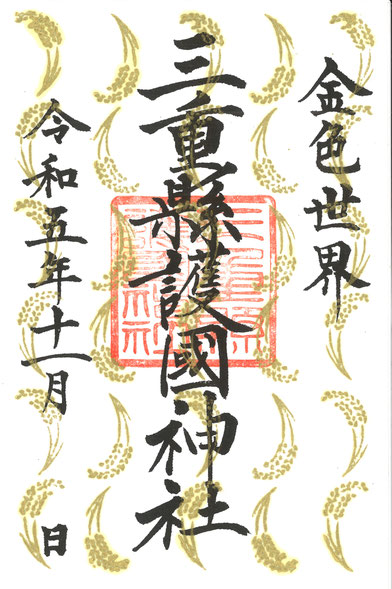 金色世界
三重縣護國神社
令和五年十一月 日